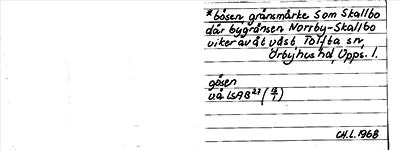 *bösen gränsmärke som Skallbo
där bygränsen Norsby-Skallbo
viker av åt väst Tolfta sn,
Örbyhus hd, Upps. l.
gösen
u.å. LSAB²⁷ (
CH.L. 1968